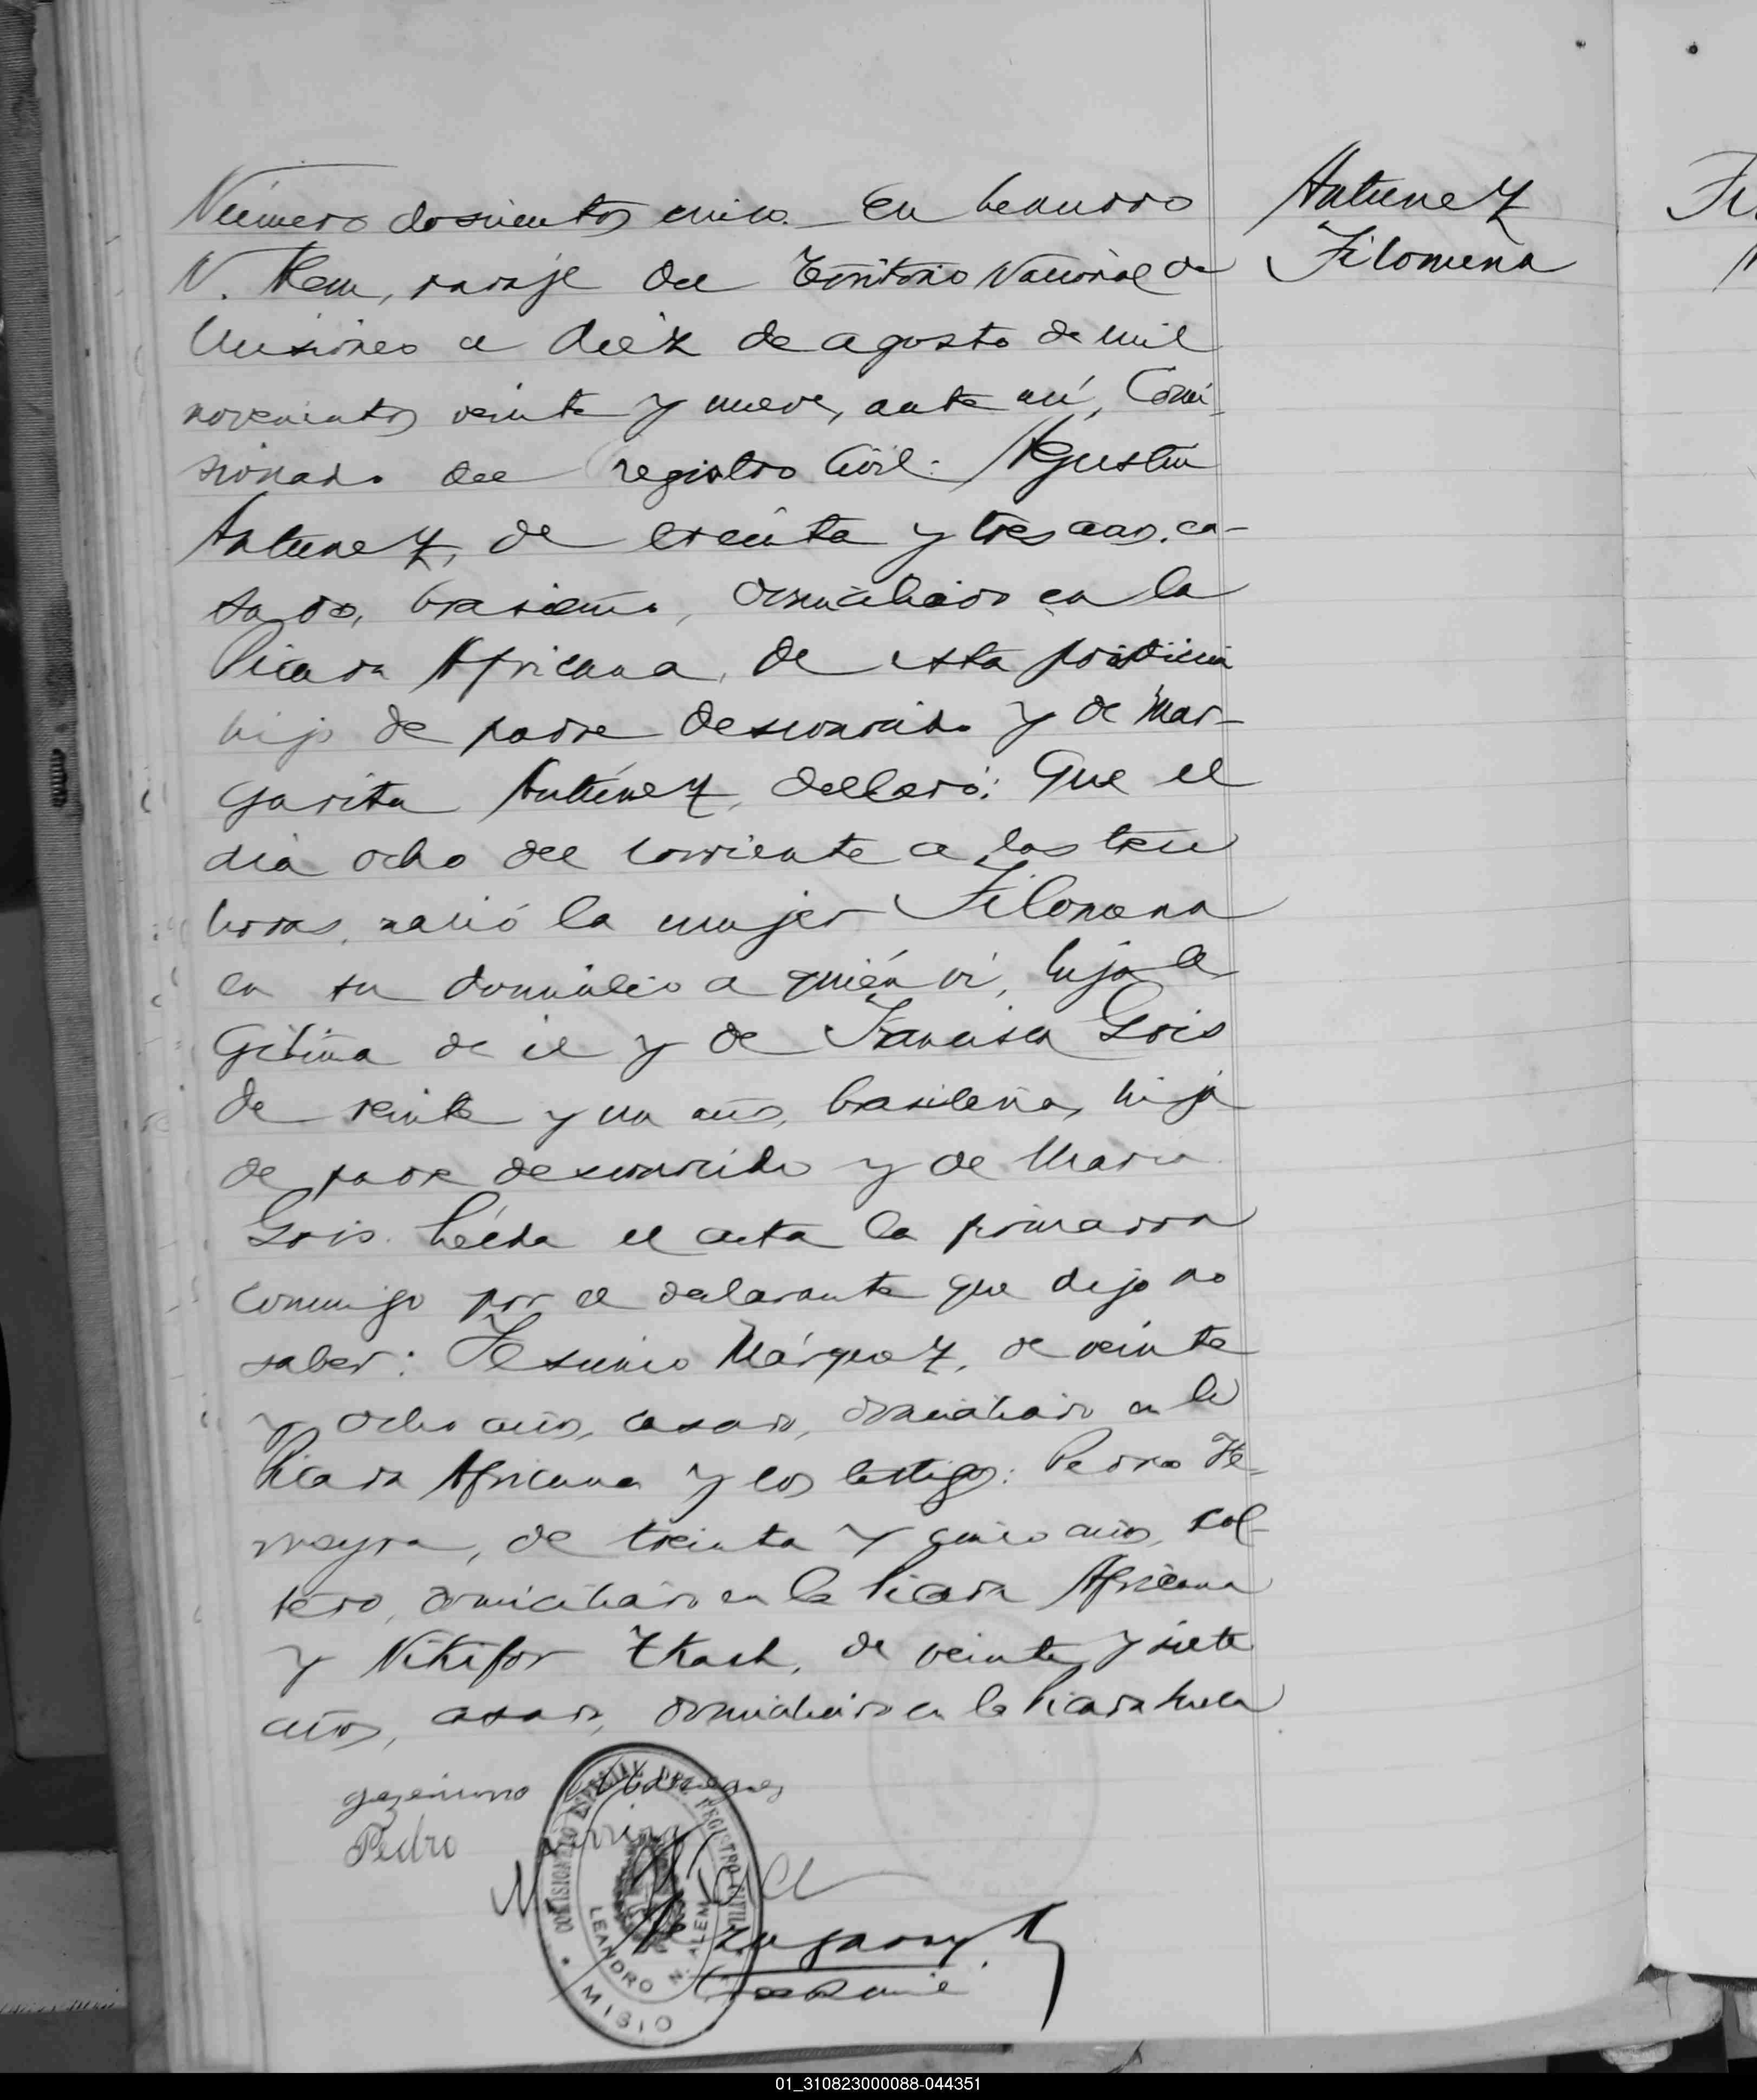 Número doscientos cinco. En Leandro
N. Alem, paraje del Territorio Nacional de
Misiones a diéz de agosto de mil
novecientos veinte y nueve, ante mí, Comi-
sionado del registro Civil: Agustin
Antunez, de treinta y tres años, ca-
sado, brasileño, domiciliado en la
Picada Africana, de esta jurisdiccion
hijo de padre desconocido y de Mar-
garita Antúnez, declaró: Que el
dia ocho del corriente a las tres
horas, nació la mujer Filomena
en su domicilio a quién ví, hija le-
gitima de él y de Francisca Gois
de veinte y un años, brasileña, hija
de padre desconocido y de Maria
Gois. Leída el acta la firmaron
conmigo por el declarante que dijo no
saber: Márquez, de veinte
y ocho años, casado, domiciliado en la
Picada Africana y los testigos: Pedro Fe-
rreyra, de treinta y cinco años, sol-
tero, domiciliado en la Picada Africana
y Nikifor Tkach, de veinte y siete
años, casado, domiciliado en la Picada
Pedro
COMISIONADO REGISTRO CIVIL
LEANDRO N. ALEM
MISIO
Antunez
Filomena
01_310823000088-044351